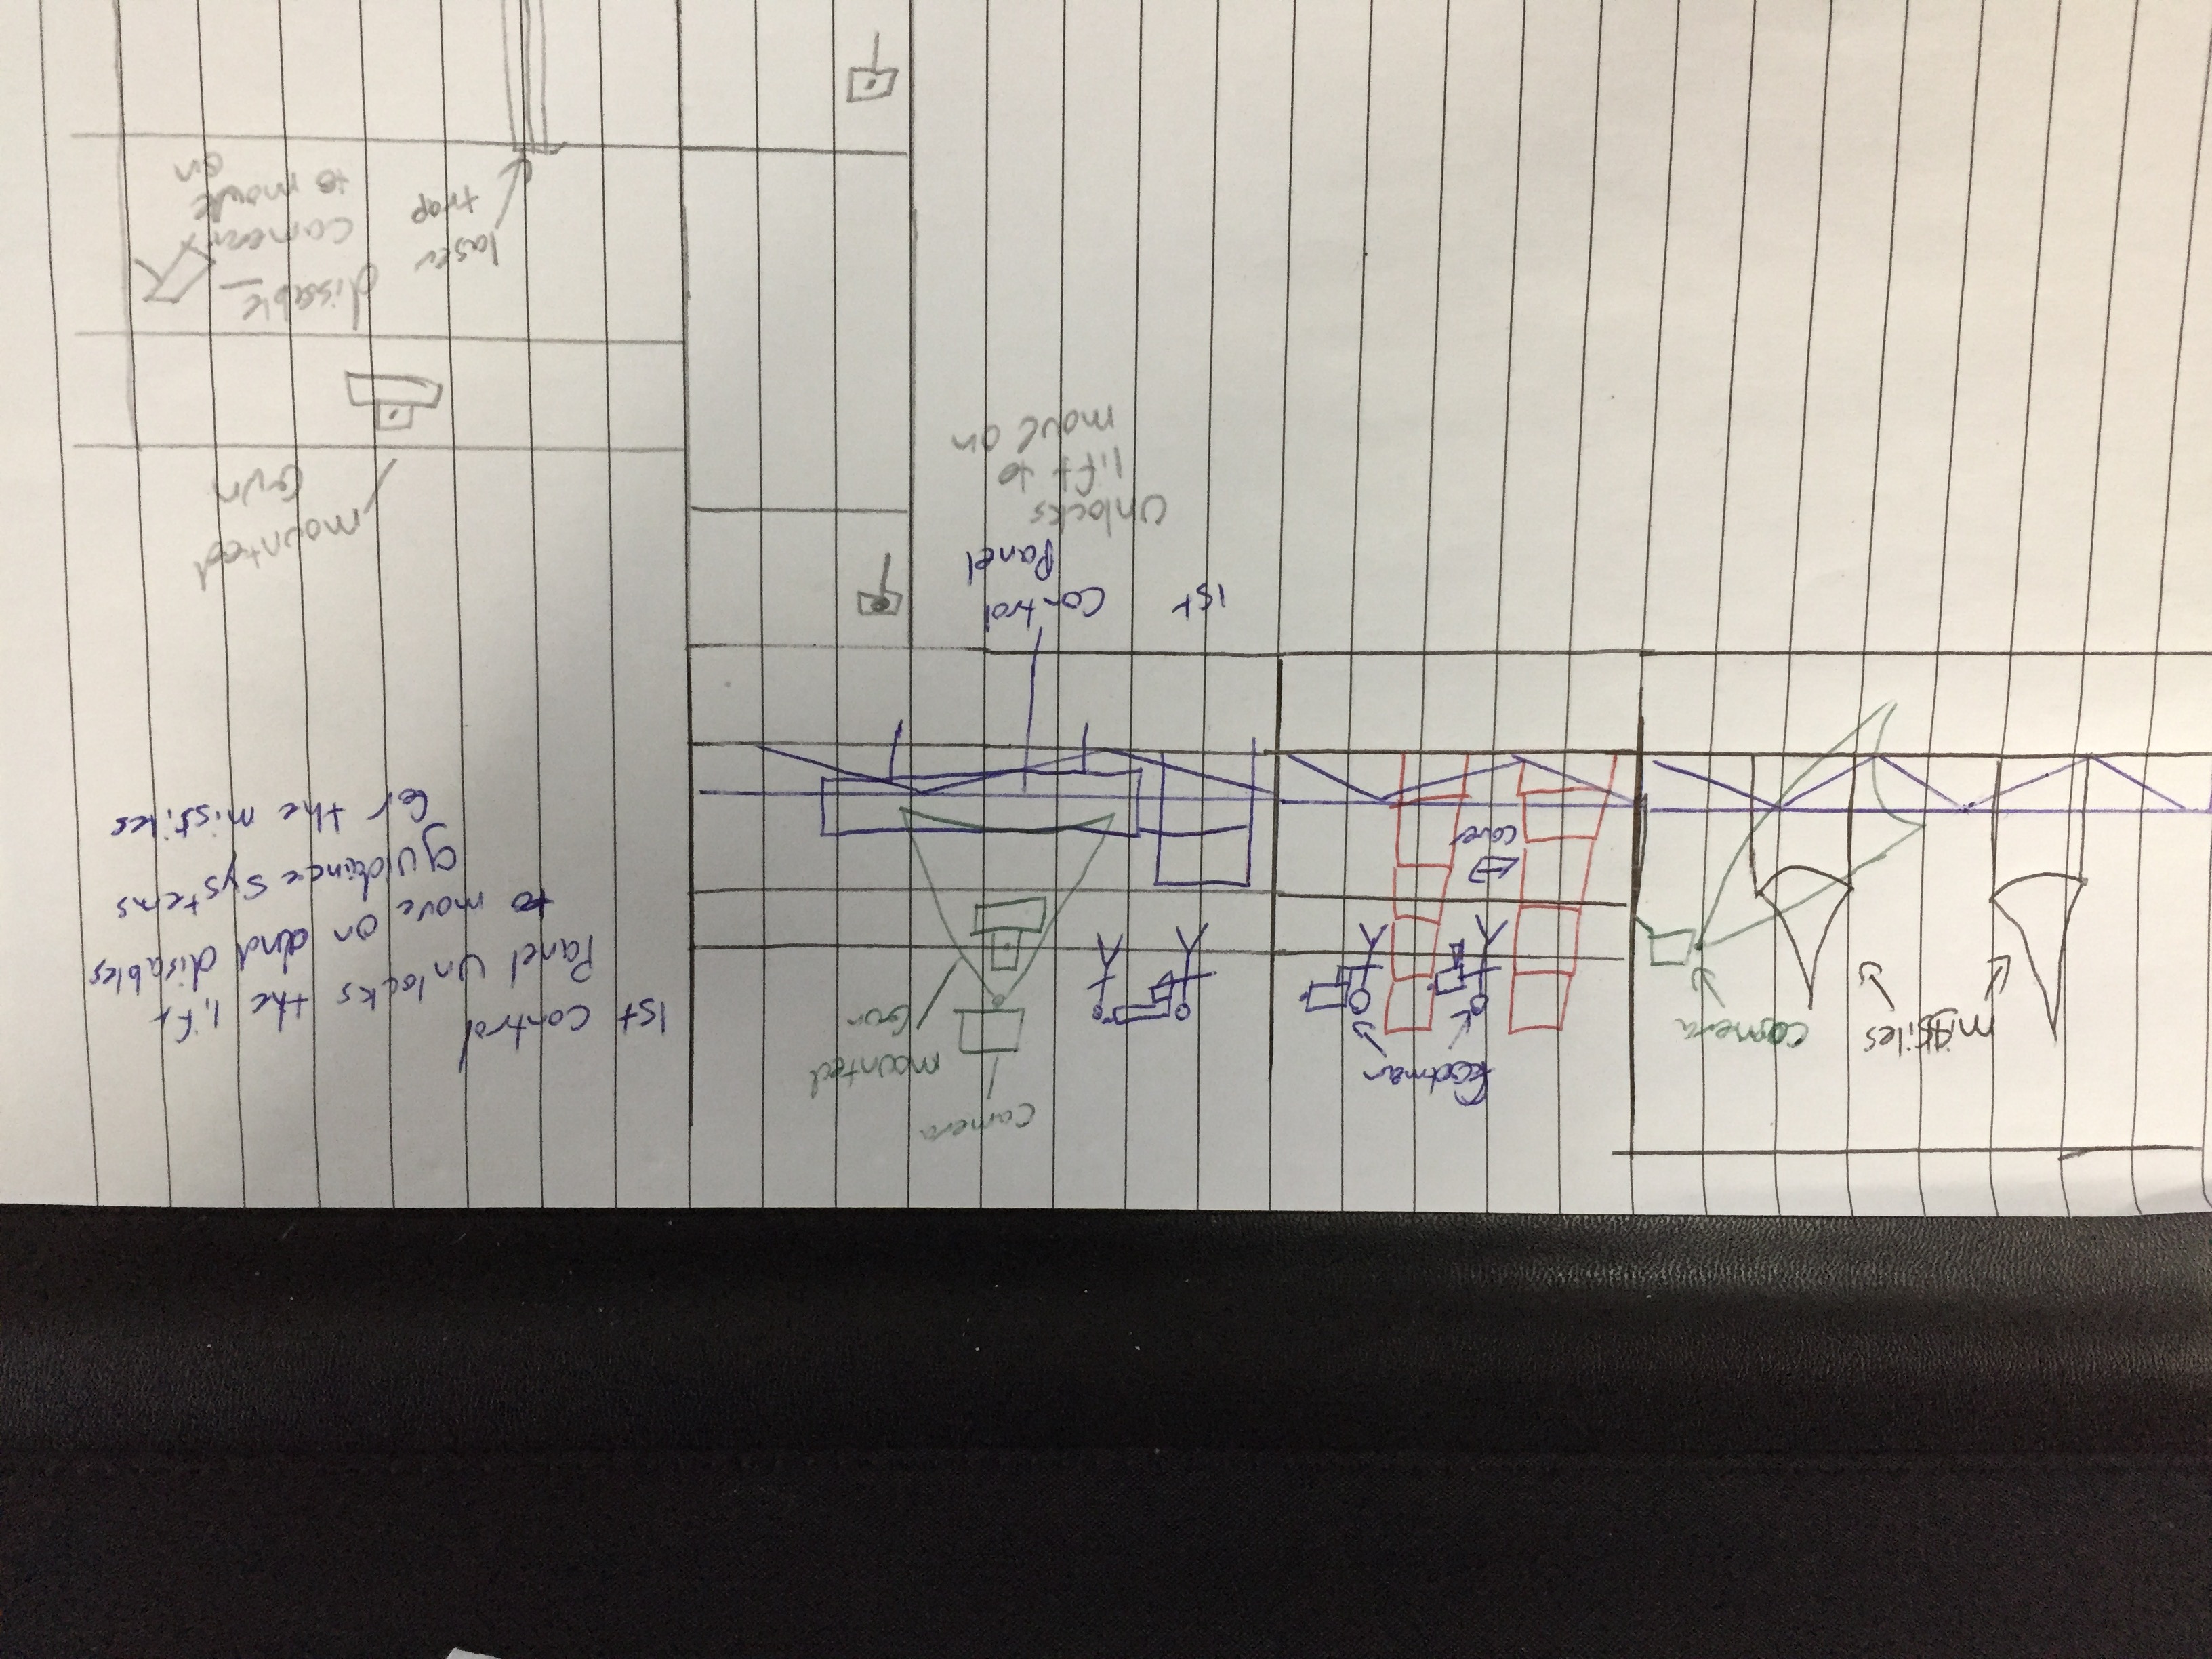 missiles
camera
footman
cover
camera
mounted
Gun
1st control
Panel unlocks the lift
to move on and disables
guidance systems
for the missiles
1st control
Panel
Unlocks
lift to
move on
mounted
Gun
laser
trap
dissable
camera
to move
on